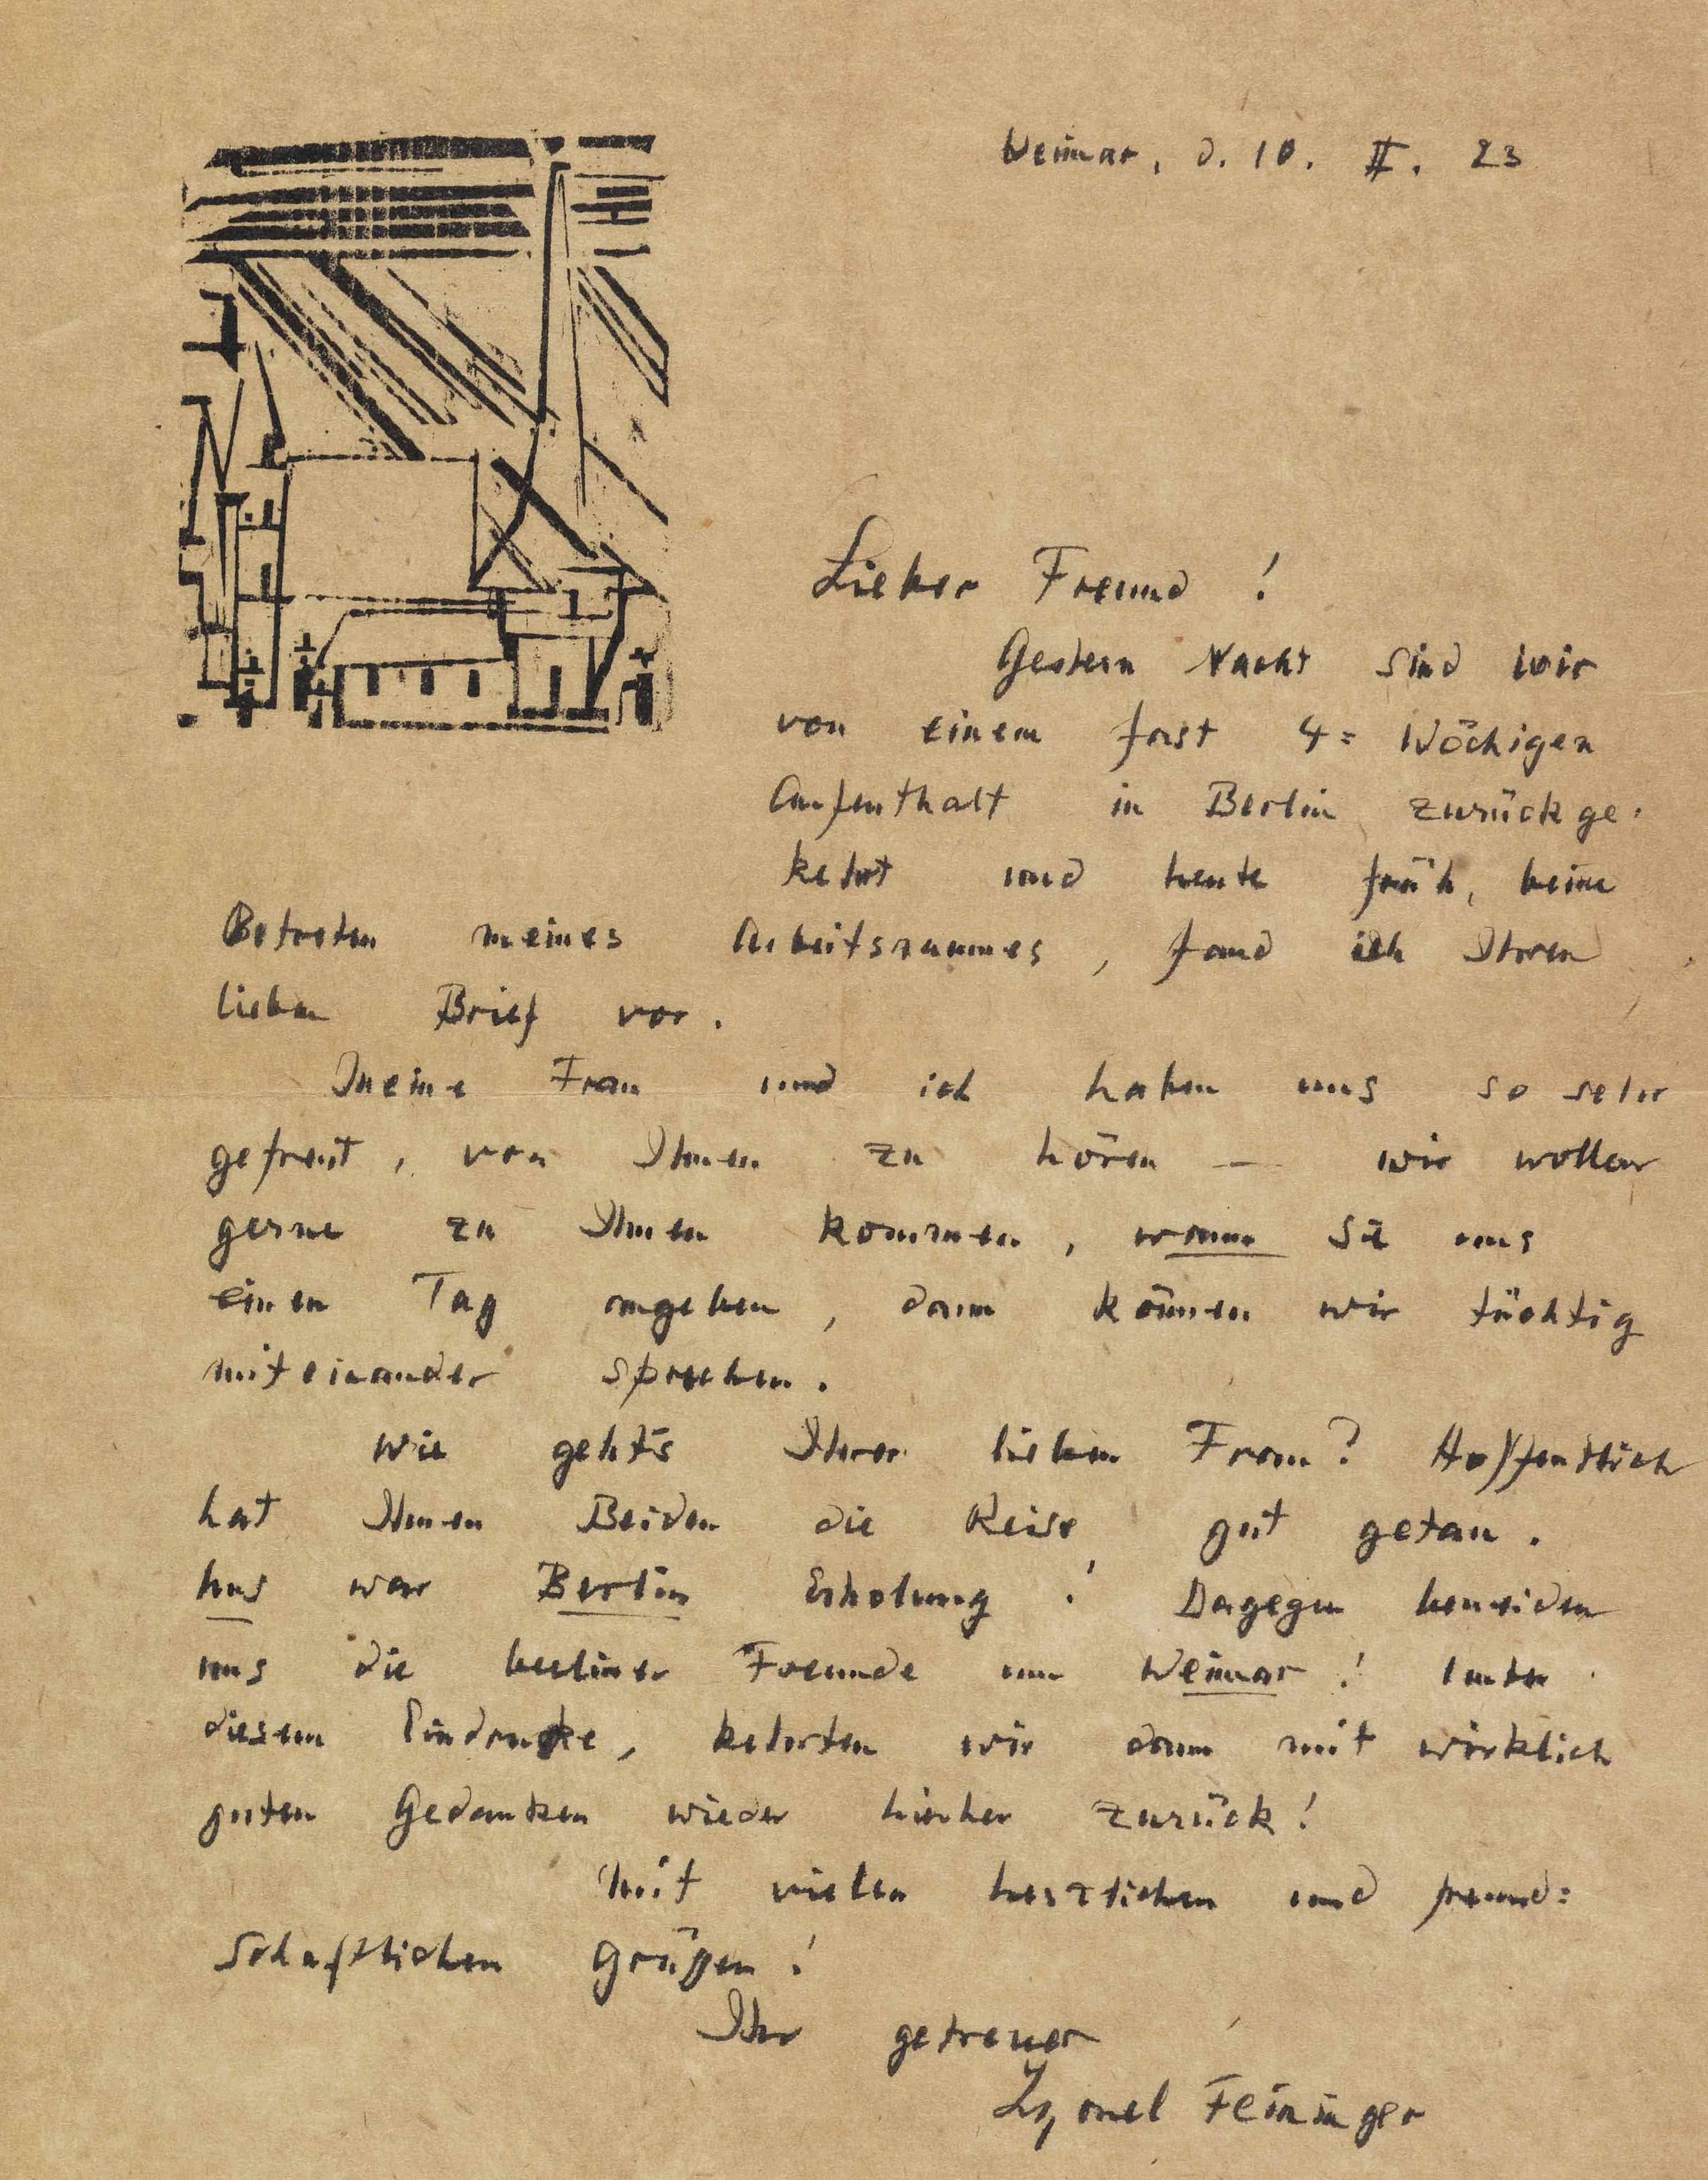 Weimar, d. 10. II. 23
Lieber Freund!
Gestern Nacht sind wir
von einem fast 4=wöchigen
Aufenthalt in Berlin zurückge-
kehrt und heute früh, beim
Betreten meines Arbeitsraumes, fand ich Ihren
lieben Brief vor.
Meine Frau und ich haben uns so sehr
gefreut, von Ihnen zu hören — wir wollen
gerne zu Ihnen kommen, wann Sie uns
einen Tag angeben, dann können wir tüchtig
miteinander sprechen.
Wie geht's Ihrer lieben Frau? Hoffentlich
hat Ihnen Beiden die Reise gut getan.
Uns war Berlin Erholung! Dagegen beneiden
uns die berliner Freunde um Weimar! Unter
diesem Eindrucke, kehrten wir dann mit wirklich
guten Gedanken wieder hierher zurück!
Mit vielen herzlichen und freund=
schaftlichen Grüßen!
Ihr getreuer
Lyonel Feininger